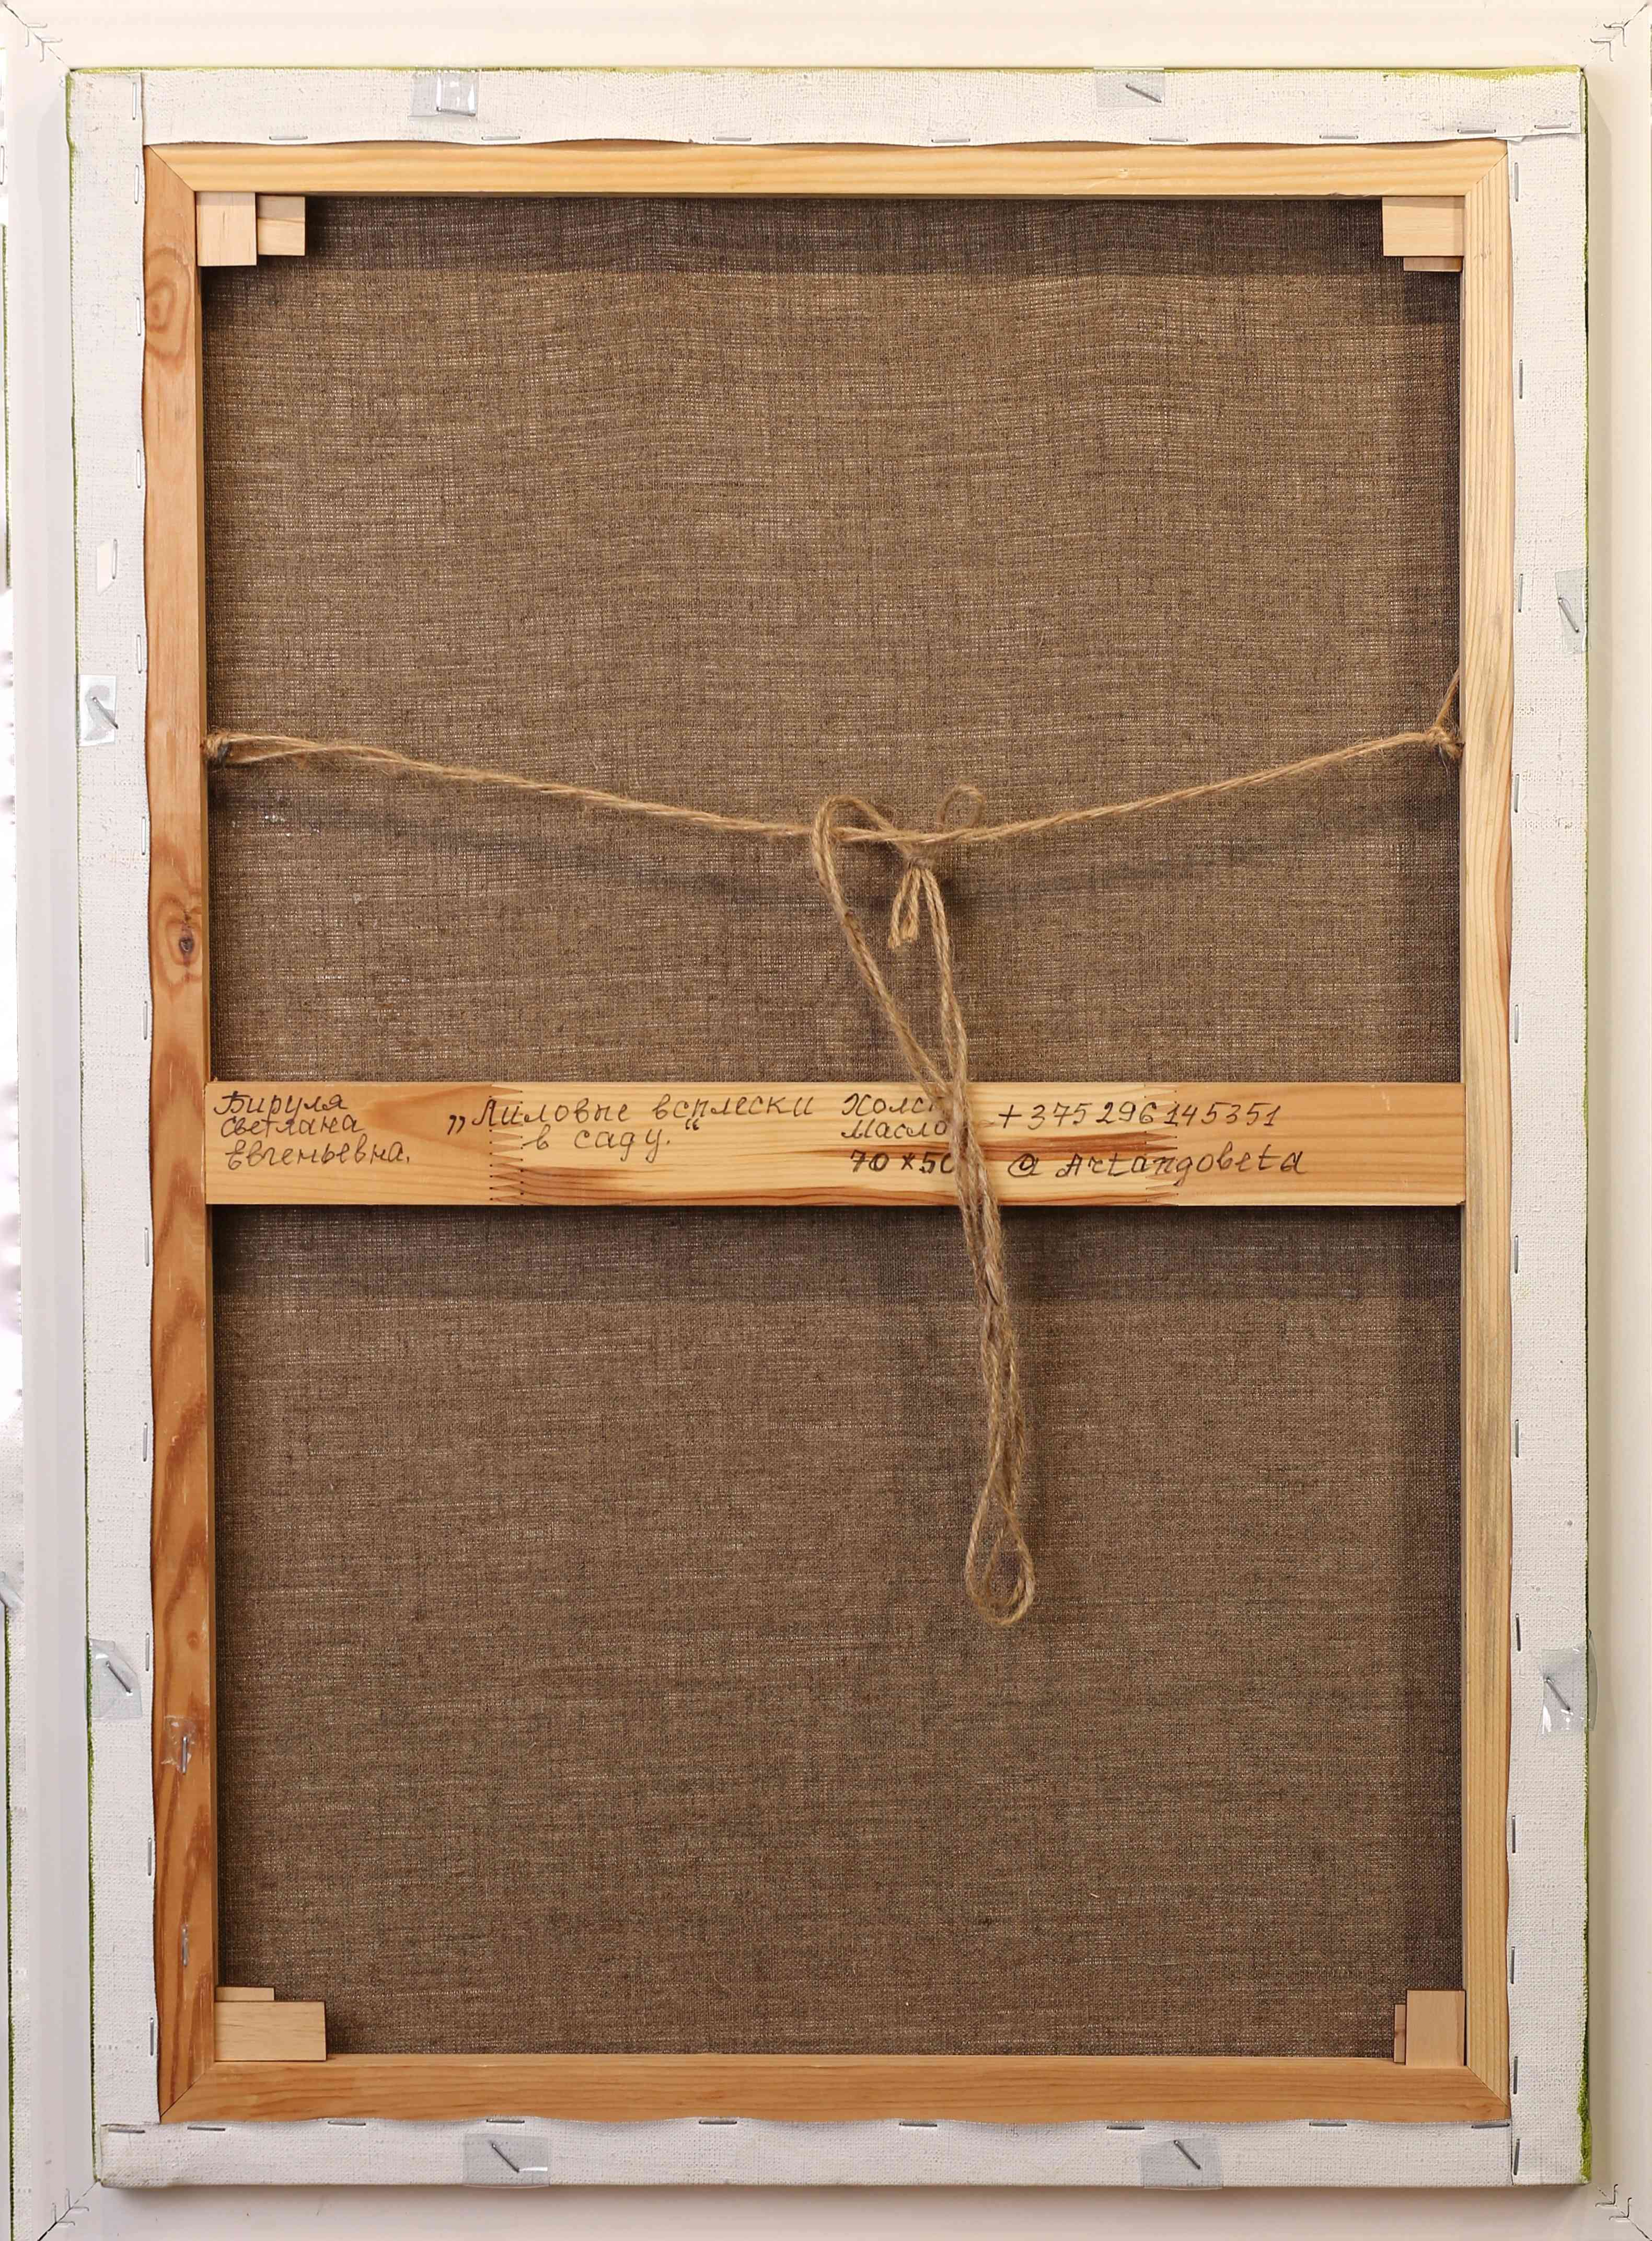 Бируля
Светлана
Евгеньевна.
„Лиловые всплески
в саду.“
Холст
Масло
70×50
+375296145351
@Artangobeta